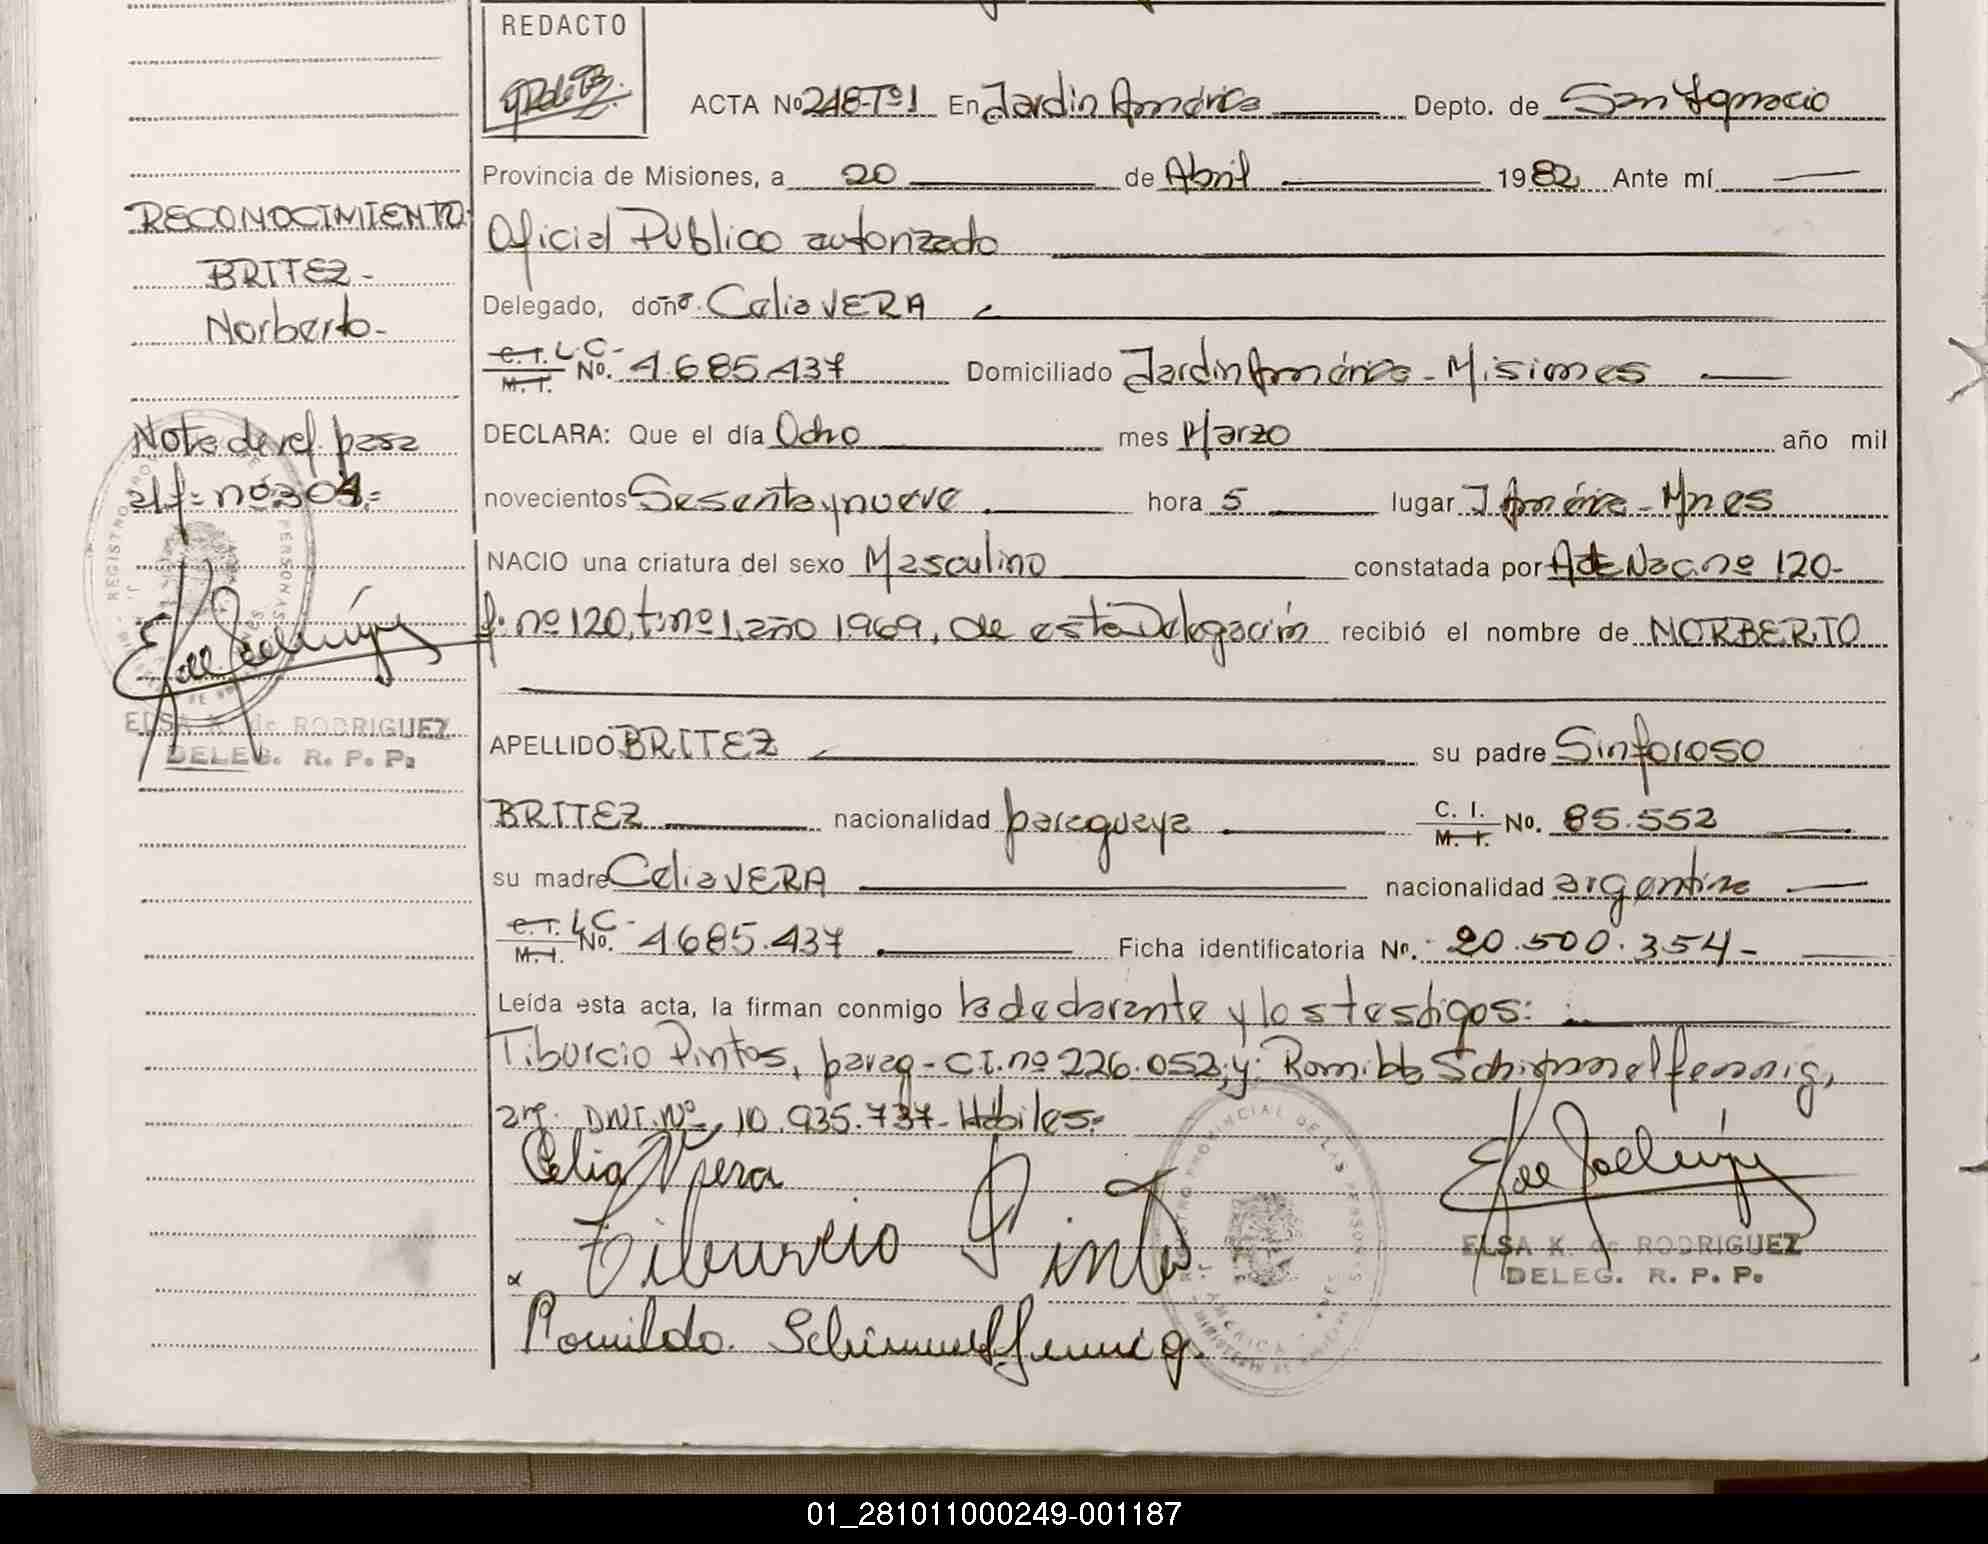 REDACTO
ACTA Nº 248-Tº1 En Jardín América Depto. de San Ignacio
Provincia de Misiones, a 20 de Abril 1982 Ante mí
Oficial Publico autorizado
Delegado, doña Celia VERA
C.I. L.C- M.I. No. 4.685.437 Domiciliado Jardín América - Misiones
DECLARA: Que el día Ocho mes Marzo año mil
novecientos Sesenta y nueve hora 5 lugar J América - Mnes
NACIO una criatura del sexo Masculino constatada por Act Nac. nº 120-
f: nº 120, t: nº 1, año 1969, de esta Delegación recibió el nombre de NORBERTO
APELLIDO BRITEZ su padre Sinforoso
BRITEZ nacionalidad paraguaya C. I. M. I. No. 85.552
su madre Celia VERA nacionalidad argentina
C.I. L.C- M.I. No. 4.685.437 Ficha identificatoria Nº. 20.500.354-
Leída esta acta, la firman conmigo la declarante y los testigos:
Tiburcio Pintos, parag - CI. nº 226.052, y: Romildo Schimmelfennig,
arg. DNI. Nº 10.935.737- Hábiles-
Celia Vera
Tiburcio Pinto
Romildo Schimmelfennig.
ELSA K. de RODRIGUEZ
DELEG. R. P. P.
RECONOCIMIENTO
BRITEZ-
Norberto-
Nota de ref. pasa
al f= nº 304=
ELSA K. de RODRIGUEZ
DELEG. R. P. P.
01_281011000249-001187